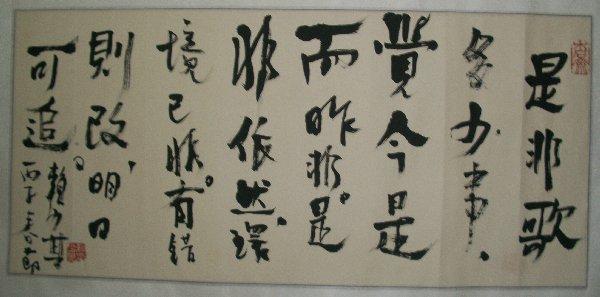 是非歌
多少事、
覺今是
而昨非。是
非依然、環
境已非。有錯
則改、明日
可追。
賴少其
丙子春節